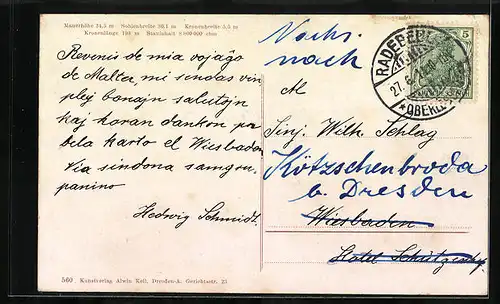 Mauerhöhe 34,5 m Sohlenbreite 36,1 m Kronenbreite 5,5 m
Kronenlänge 193 m Stauinhalt 8 800 000 cbm
Revenis de mia vojaĝo
de Malter, mi sendas vin
plej bonajn salutojn
kaj koran dankon po
bela karto el Wiesbaden
Via sindona samgen-
panino
Hedwig Schmidt.
560 Kunstverlag Alwin Keil, Dresden-A. Gerichtsstr. 23
Nachs.
nach
Sinj. Wilh. Schlag
Kötzschenbroda
b. Dresden
Wiesbaden
Hotel Schützenhof
RADEBEUL
27.6.
* OBERL
5